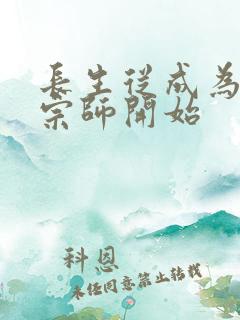 長生從成為
宗師開始
科恩
未經同意禁止轉載